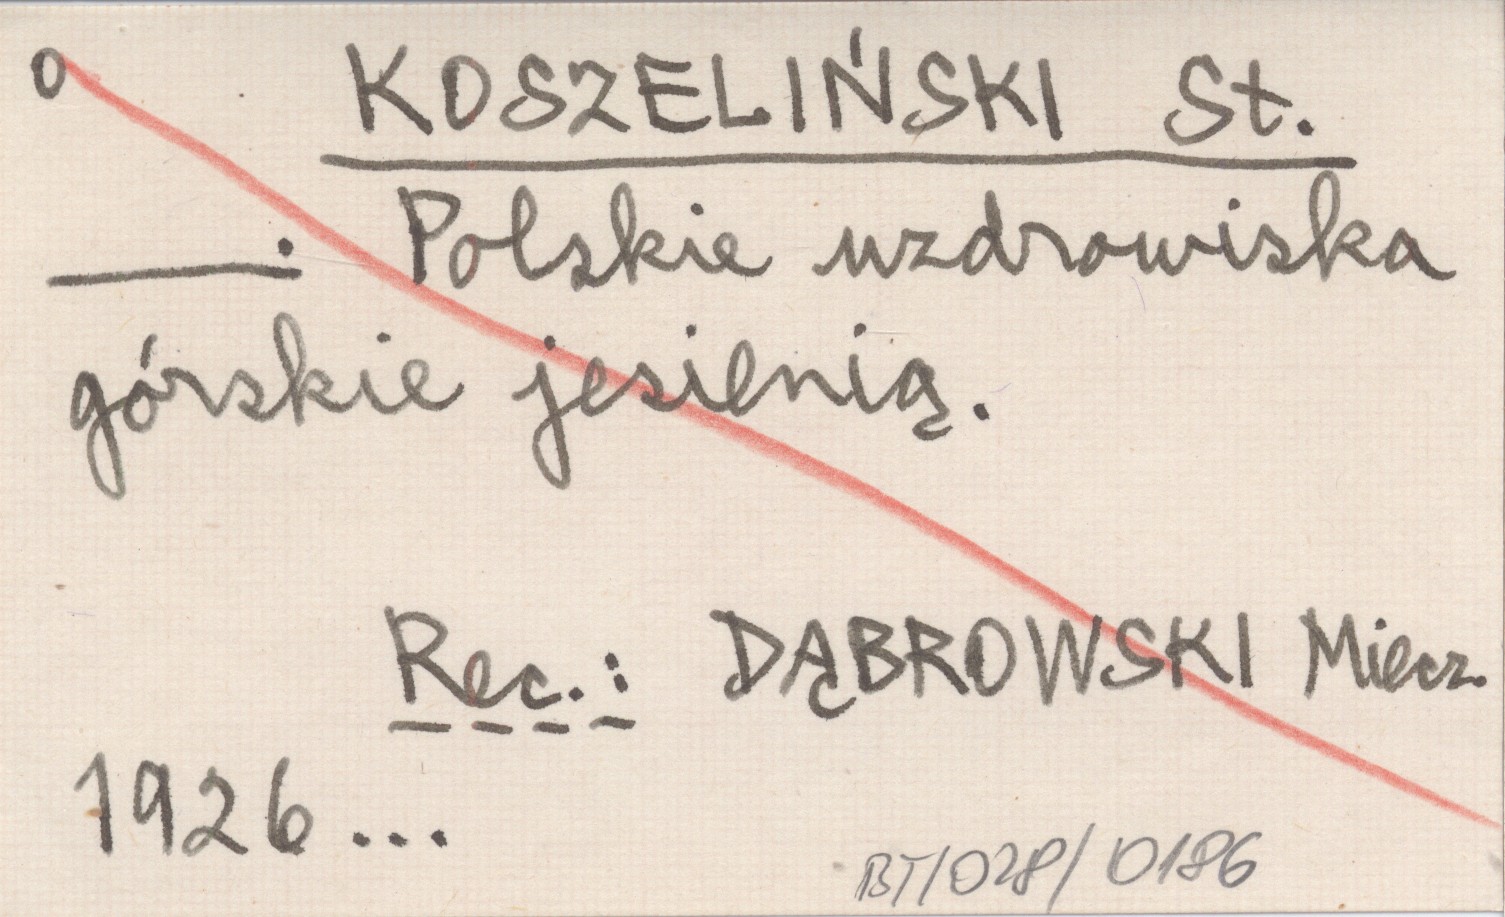 o KOSZELIŃSKI St.
———: Polskie uzdrowiska
górskie jesienią.
Rec.: DĄBROWSKI Miecz.
1926...
BT/028/0186